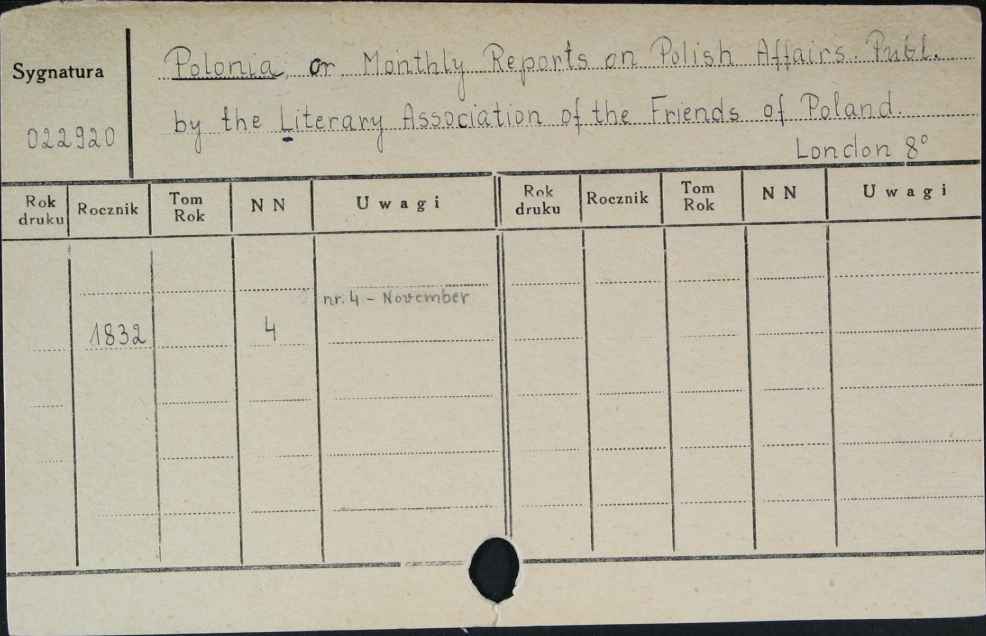 Sygnatura
022920
Polonia or Monthly Reports on Polish Affairs. Publ.
by the Literary Association of the Friends of Poland.
London 8°
Rok druku Rocznik Tom Rok N N Uwagi Rok druku Rocznik Tom Rok N N Uwagi
nr. 4 - November
1832 4